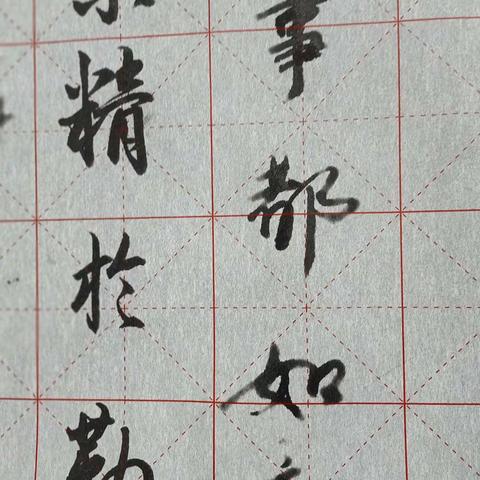 事都如
精於勤